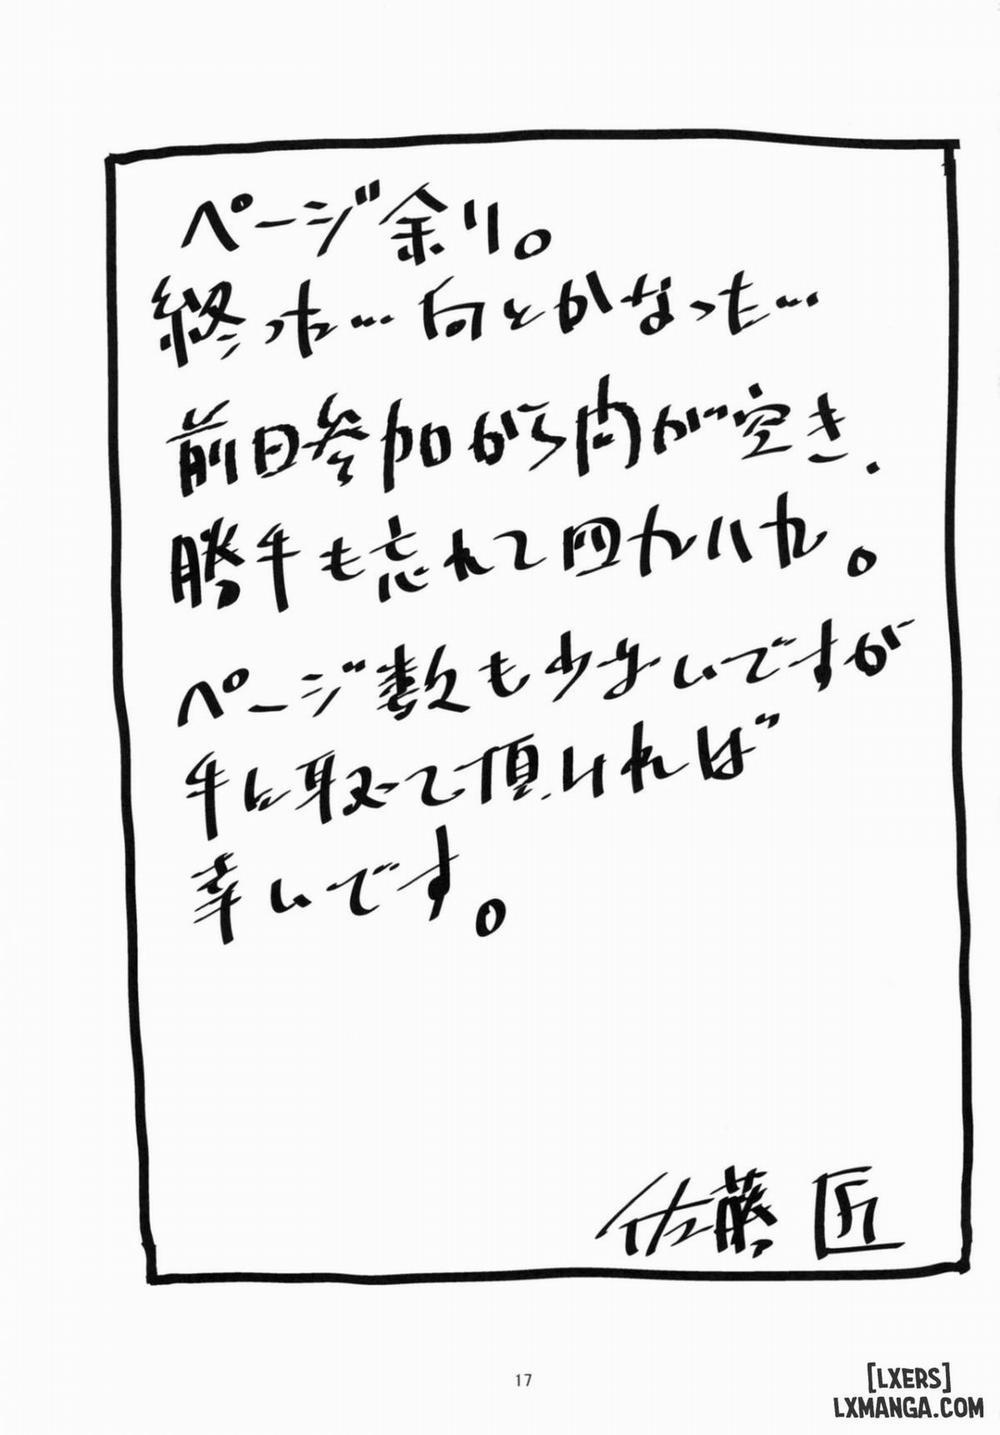 ページ余り。
終った…何とかなった…
前回参加から間が空き、
勝手も忘れて四苦八苦。
ページ数も少ないですが
手に取って頂ければ
幸いです。
佐藤 匠
17
[LXERS]
LXMANGA.COM